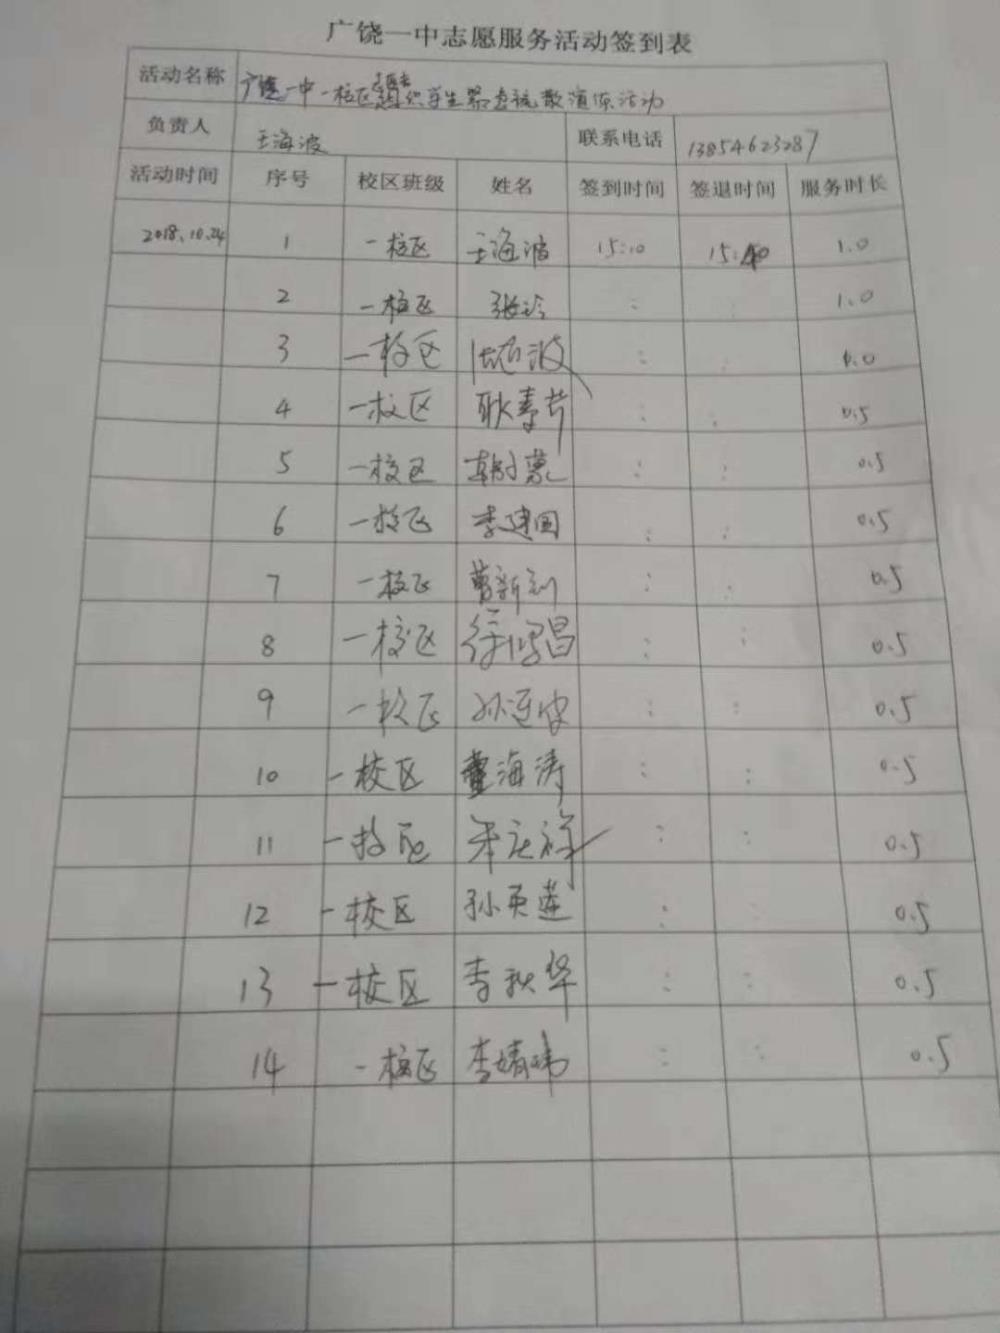 广饶一中志愿服务活动签到表
活动名称 广饶一中一校区组织学生紧急疏散演练活动
负责人 王海波 联系电话 13854623287
活动时间 序号 校区班级 姓名 签到时间 签退时间 服务时长
2018.10.24 1 一校区 王海波 15:10 15:40 1.0
2 一校区 张玲 : : 1.0
3 一校区 : : 1.0
4 一校区 耿春芳 : : 0.5
5 一校区 : : 0.5
6 一校区 李建国 : : 0.5
7 一校区 曹新剑 : : 0.5
8 一校区 : : 0.5
9 一校区 : : 0.5
10 一校区 董海涛 : : 0.5
11 一校区 : : 0.5
12 一校区 孙英莲 : : 0.5
13 一校区 李秋华 : : 0.5
14 一校区 李婧玮 : : 0.5